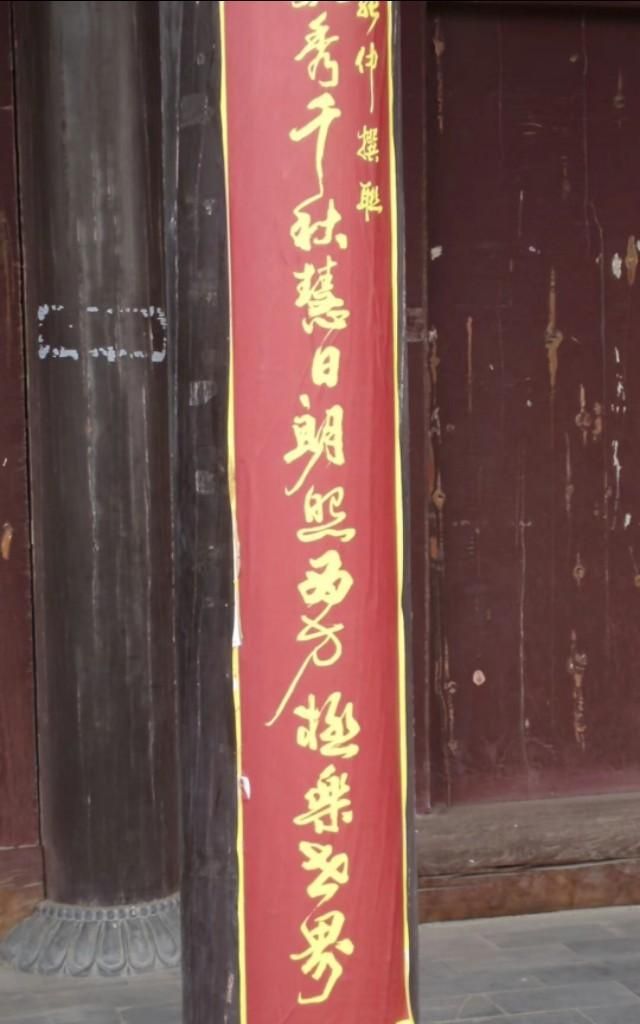 伸撰聯
秀千秋慧日朗照西方極樂世界